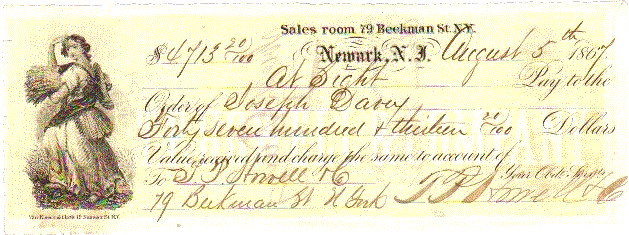 Sales room 79 Beekman St. N.Y.
$4713 20/100 Newark, N.J. August 5th 1867
At Sight Pay to the
Order of Joseph Davey
Forty seven hundred & thirteen 20/100 Dollars
Value received and charge the same to account of
To T P Howell & Co Your Obdt. Servts
79 Beekman St N York T P Howell & Co